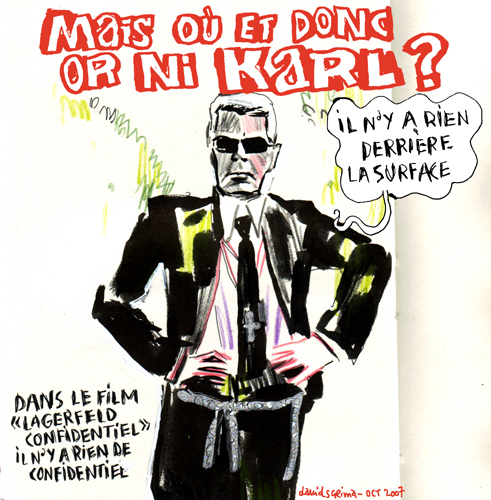 MAiS OÙ ET DONC
OR Ni KARL ?
iL N'Y A RIEN
DERRIÈRE
LA SURFACE
DANS LE FILM
«LAGERFELD
CONFIDENTIEL»
iL N'Y A RIEN DE
CONFIDENTIEL
davidsgrima - OCT 2007